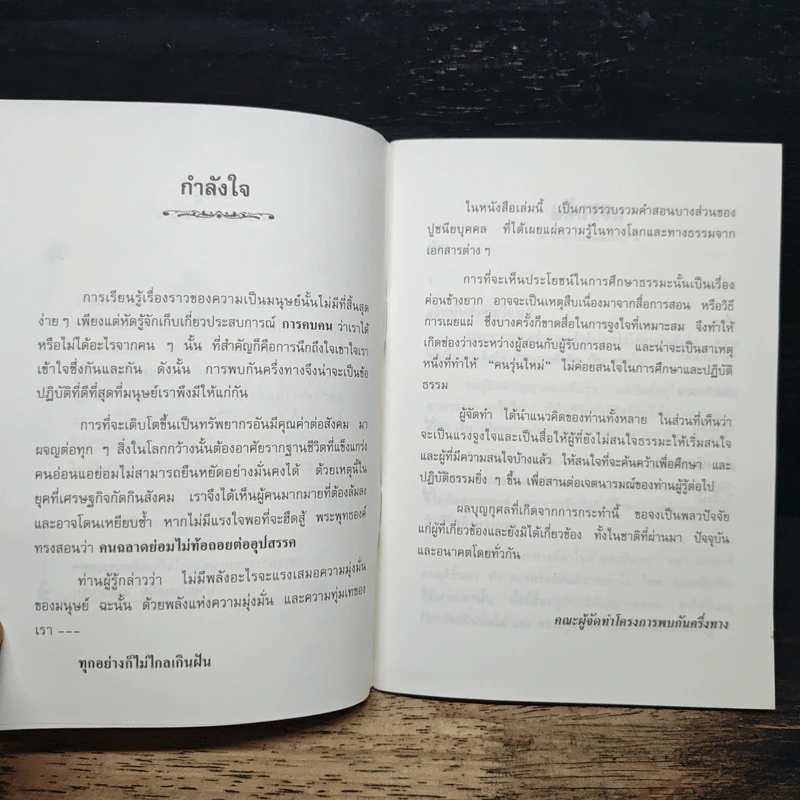 กำลังใจ
การเรียนรู้เรื่องราวของความเป็นมนุษย์นั้นไม่มีที่สิ้นสุด
ง่าย ๆ เพียงแต่หัดรู้จักเก็บเกี่ยวประสบการณ์ การคบคน ว่าเราได้
หรือไม่ได้อะไรจากคน ๆ นั้น ที่สำคัญก็คือการนึกถึงใจเขาใจเรา
เข้าใจซึ่งกันและกัน ดังนั้น การพบกันครึ่งทางจึงน่าจะเป็นข้อ
ปฏิบัติที่ดีที่สุดที่มนุษย์เราพึงมีให้แก่กัน
การที่จะเติบโตขึ้นเป็นทรัพยากรอันมีคุณค่าต่อสังคม มา
ผจญต่อทุก ๆ สิ่งในโลกกว้างนั้นต้องอาศัยรากฐานชีวิตที่แข็งแกร่ง
คนอ่อนแอย่อมไม่สามารถยืนหยัดอย่างมั่นคงได้ ด้วยเหตุนี้ใน
ยุคที่เศรษฐกิจกัดกินสังคม เราจึงได้เห็นผู้คนมากมายที่ต้องล้มลง
และอาจโดนเหยียบซ้ำ หากไม่มีแรงใจพอที่จะฮึดสู้ พระพุทธองค์
ทรงสอนว่า คนฉลาดย่อมไม่ท้อถอยต่ออุปสรรค
ท่านผู้รู้กล่าวว่า ไม่มีพลังอะไรจะแรงเสมอความมุ่งมั่น
ของมนุษย์ ฉะนั้น ด้วยพลังแห่งความมุ่งมั่น และความทุ่มเทของ
เรา ---
ทุกอย่างก็ไม่ไกลเกินฝัน
ในหนังสือเล่มนี้ เป็นการรวบรวมคำสอนบางส่วนของ
ปูชนียบุคคล ที่ได้เผยแผ่ความรู้ในทางโลกและทางธรรมจาก
เอกสารต่าง ๆ
การที่จะเห็นประโยชน์ในการศึกษาธรรมะนั้นเป็นเรื่อง
ค่อนข้างยาก อาจจะเป็นเหตุสืบเนื่องมาจากสื่อการสอน หรือวิธี
การเผยแผ่ ซึ่งบางครั้งก็ขาดสื่อในการจูงใจที่เหมาะสม จึงทำให้
เกิดช่องว่างระหว่างผู้สอนกับผู้รับการสอน และน่าจะเป็นสาเหตุ
หนึ่งที่ทำให้ “คนรุ่นใหม่” ไม่ค่อยสนใจในการศึกษาและปฏิบัติ
ธรรม
ผู้จัดทำ ได้นำแนวคิดของท่านทั้งหลาย ในส่วนที่เห็นว่า
จะเป็นแรงจูงใจและเป็นสื่อให้ผู้ที่ยังไม่สนใจธรรมะให้เริ่มสนใจ
และผู้ที่มีความสนใจบ้างแล้ว ให้สนใจที่จะค้นคว้าเพื่อศึกษา และ
ปฏิบัติธรรมยิ่ง ๆ ขึ้น เพื่อสานต่อเจตนารมณ์ของท่านผู้รู้ต่อไป
ผลบุญกุศลที่เกิดจากการกระทำนี้ ขอจงเป็นพลวปัจจัย
แก่ผู้ที่เกี่ยวข้องและยังมิได้เกี่ยวข้อง ทั้งในชาติที่ผ่านมา ปัจจุบัน
และอนาคตโดยทั่วกัน
คณะผู้จัดทำโครงการพบกันครึ่งทาง